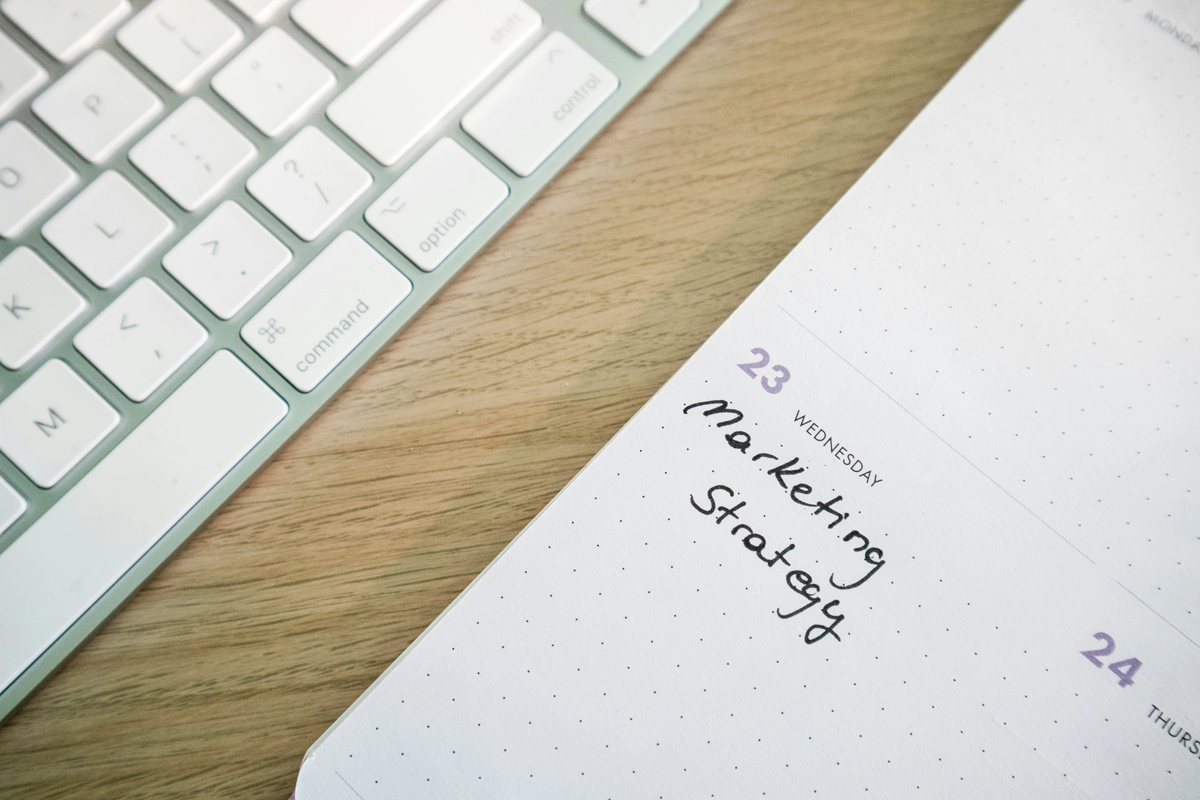 shift
control
option
command
P
L
K
M
? /
> .
< ,
23
WEDNESDAY
Marketing
Strategy
24